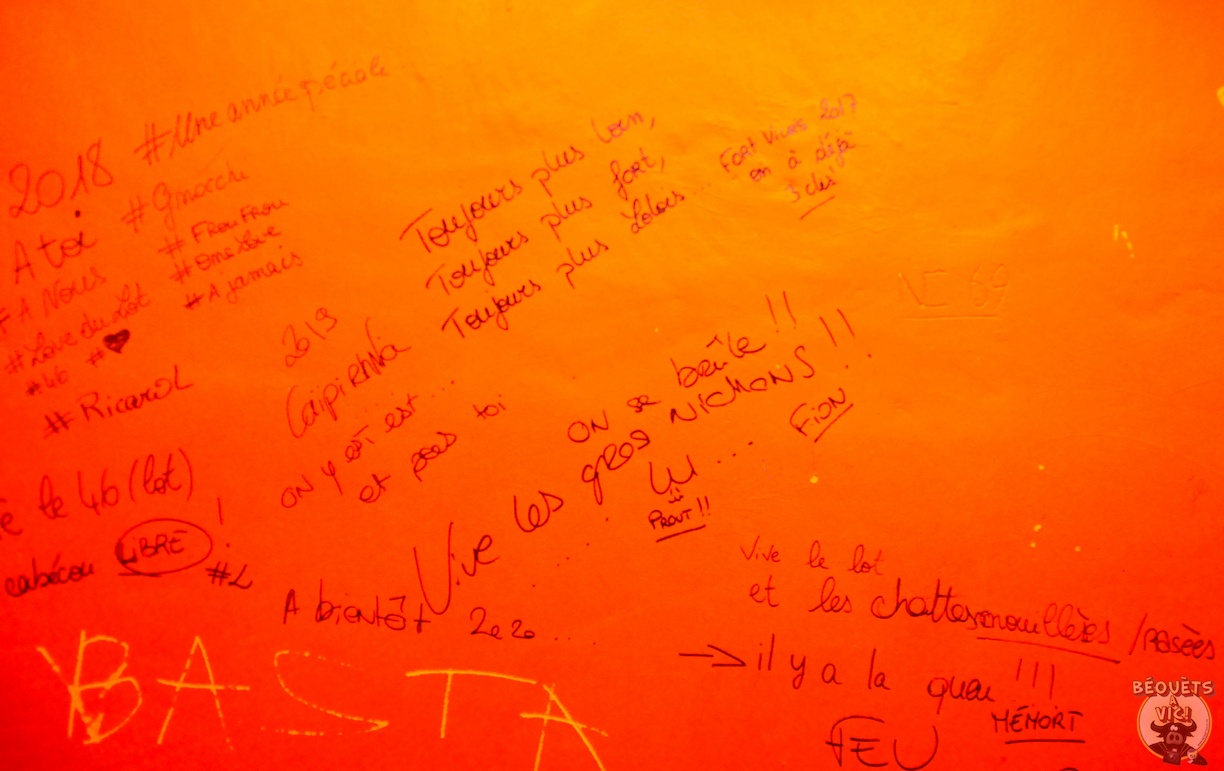 2018 #Une année pécole
A toi #Gnocchi
#A Nous #FrouFrou
#Love du Lot #OneLove
#46 #♥ #A jamais
#Ricard
2019
CaïpiRNha
ON Y est est...
et pas toi
Toujours plus loin,
Toujours plus fort,
Toujours plus Lolois...
FORT Vices 2017
on à déjà
3 clés!
NE 69
ON se brûle !!
Vive les gros NICHONS !!
FION
PROUT!!
le 46 (lot)
cabécou LIBRE !
#L
A bientôt 2020....
Vive le lot
et les chattes mouillées / rasées
→ il y a la queu !!!
MÉMORT
FEU
BASTA
BÉOUÈTS
A
VICI